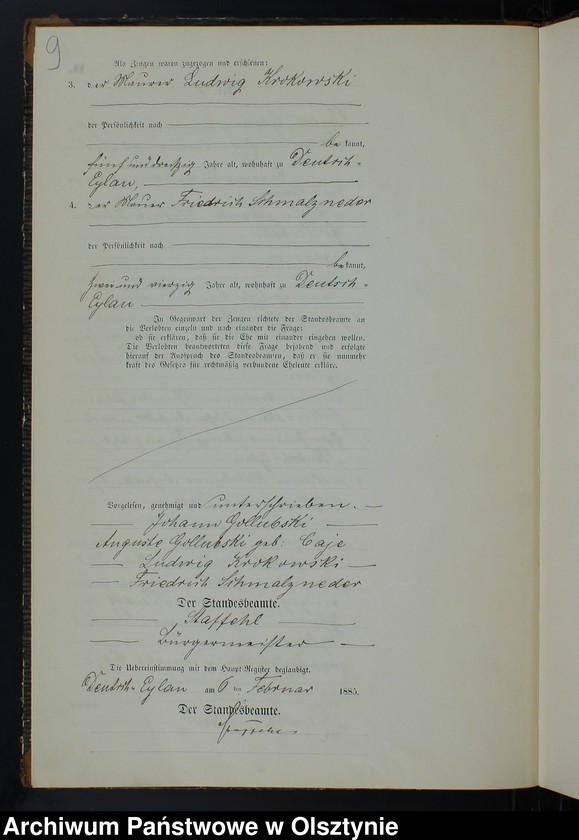 9
Als Zeugen waren zugezogen und erschienen:
3. der Maurer Ludwig Krokowski
der Persönlichkeit nach
be kannt,
fünf und dreißig Jahre alt, wohnhaft zu Deutsch-
Eylau,
4. der Maurer Friedrich Schmalzneder
der Persönlichkeit nach
be kannt,
zwei und vierzig Jahre alt, wohnhaft zu Deutsch-
Eylau
In Gegenwart der Zeugen richtete der Standesbeamte an
die Verlobten einzeln und nach einander die Frage:
ob sie erklären, daß sie die Ehe mit einander eingehen wollen.
Die Verlobten beantworteten diese Frage bejahend und erfolgte
hierauf der Ausspruch des Standesbeamten, daß er sie nunmehr
kraft des Gesetzes für rechtmäßig verbundene Eheleute erkläre.
Vorgelesen, genehmigt und unterschrieben.
Johann Gollubski
Auguste Gollubski geb: Caje
Ludwig Krokowski
Friedrich Schmalzneder
Der Standesbeamte.
Staffehl
Bürgermeister
Die Uebereinstimmung mit dem Haupt-Register beglaubigt.
Deutsch-Eylau am 6 ten Februar 1885.
Der Standesbeamte.
Archiwum Państwowe w Olsztynie